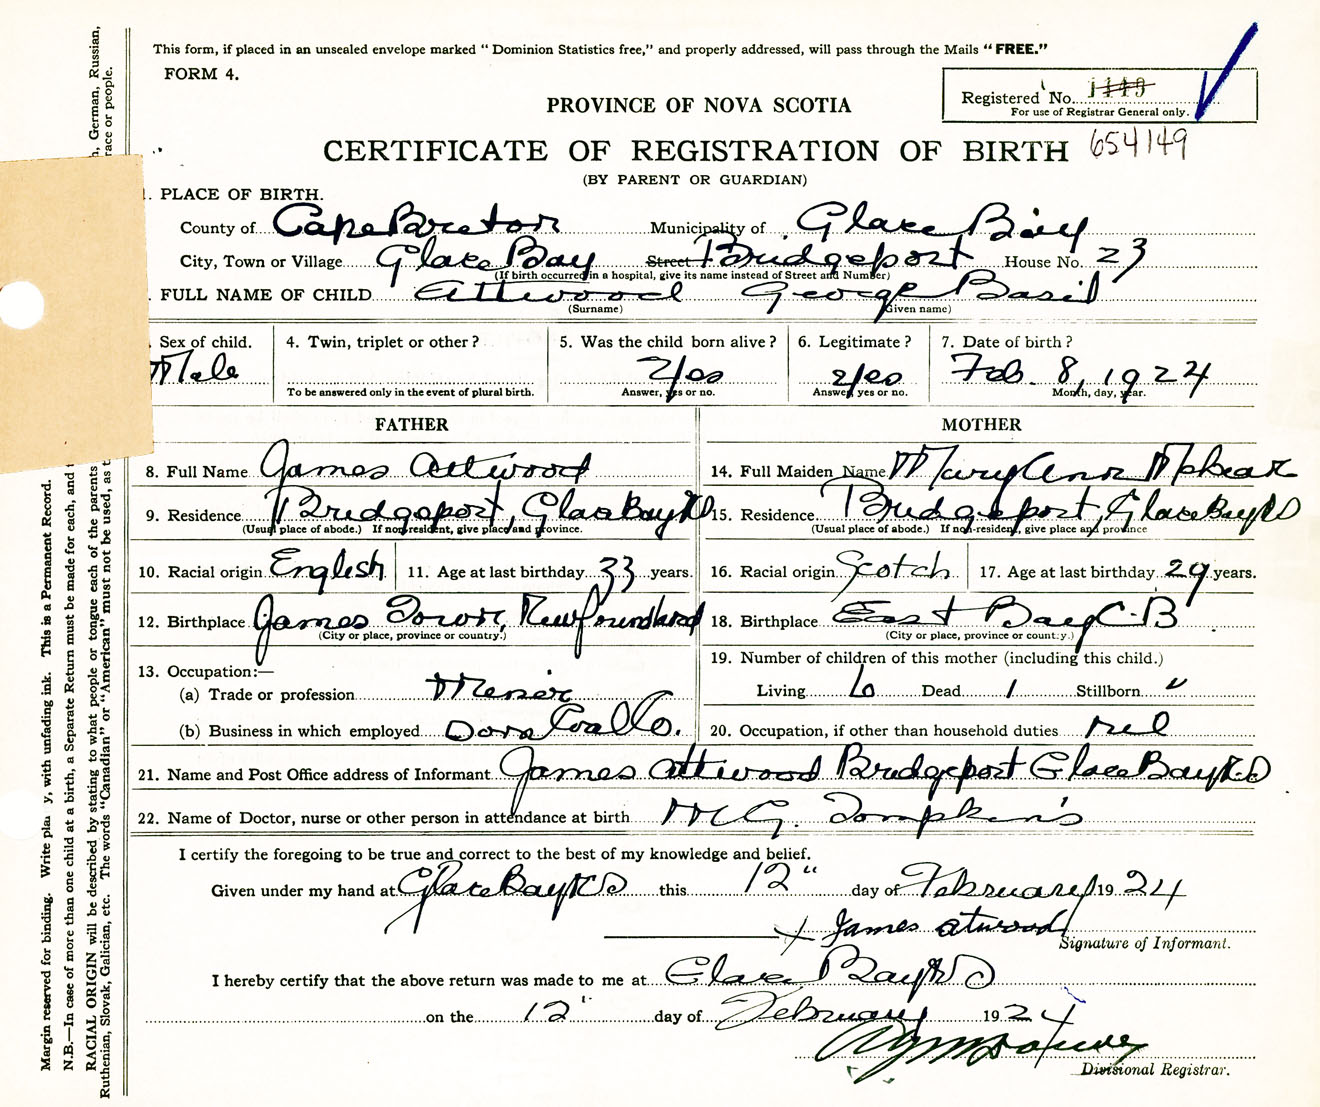 This form, if placed in an unsealed envelope marked "Dominion Statistics free," and properly addressed, will pass through the Mails "FREE."
FORM 4.
Registered No. 1149
For use of Registrar General only.
PROVINCE OF NOVA SCOTIA
CERTIFICATE OF REGISTRATION OF BIRTH 654149
(BY PARENT OR GUARDIAN)
1. PLACE OF BIRTH.
County of Cape Breton Municipality of Glace Bay
City, Town or Village Glace Bay Street Bridgeport House No. 23
(If birth occurred in a hospital, give its name instead of Street and Number)
. FULL NAME OF CHILD Attwood George Basil
(Surname) (Given name)
. Sex of child. 4. Twin, triplet or other? 5. Was the child born alive? 6. Legitimate? 7. Date of birth?
Male Yes Yes Feb. 8, 1924
To be answered only in the event of plural birth. Answer, yes or no. Answer, yes or no. Month, day, year.
FATHER MOTHER
8. Full Name James Attwood 14. Full Maiden Name Mary Ann
9. Residence Bridgeport, Glace Bay RD 15. Residence Bridgeport, Glace Bay RD
(Usual place of abode.) If non-resident, give place and province. (Usual place of abode.) If non-resident, give place and province
10. Racial origin English 11. Age at last birthday 33 years. 16. Racial origin Scotch 17. Age at last birthday 29 years.
12. Birthplace James Town, Newfoundland 18. Birthplace East Bay C-B
(City or place, province or country.) (City or place, province or country.)
13. Occupation:— 19. Number of children of this mother (including this child.)
(a) Trade or profession Miner Living 6 Dead 1 Stillborn "
(b) Business in which employed Dom Coal Co. 20. Occupation, if other than household duties nil
21. Name and Post Office address of Informant James Attwood Bridgeport Glace Bay R.D
22. Name of Doctor, nurse or other person in attendance at birth M G. Tompkins
I certify the foregoing to be true and correct to the best of my knowledge and belief.
Given under my hand at Glace Bay RD this 12" day of February 1924
x James atwood
Signature of Informant.
I hereby certify that the above return was made to me at Glace Bay RD
on the 12" day of February 1924
Divisional Registrar.
Margin reserved for binding. Write pla y, with unfading ink. This is a Permanent Record.
N.B.—In case of more than one child at a birth, a Separate Return must be made for each, and
RACIAL ORIGIN will be described by stating to what people or tongue each of the parents German, Russian,
Ruthenian, Slovak, Galician, etc. The words "Canadian" or "American" must not be used, as race or people.